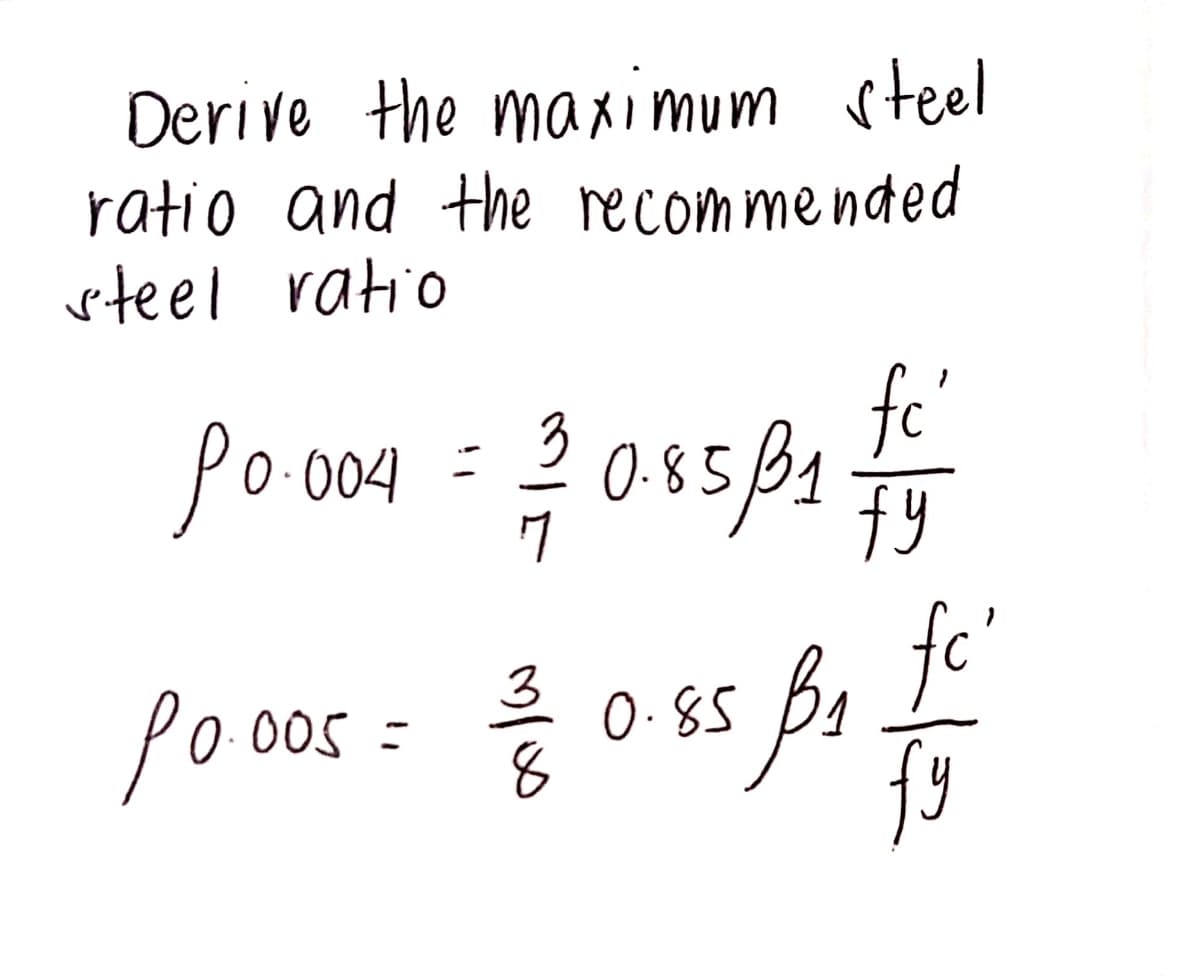 Derive the maximum steel
ratio and the recommended
steel ratio
ρ0.004 = 3/7 0.85 β1 fc'/fy
ρ0.005 = 3/8 0.85 β1 fc'/fy